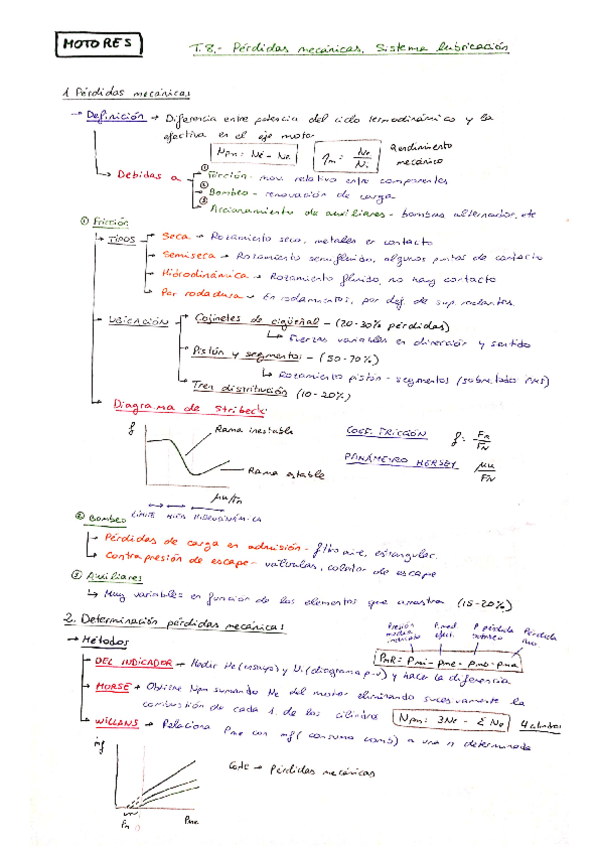 MOTORES
T.8.- Pérdidas mecánicas. Sistema lubricación
1 Pérdidas mecánicas
→ Definición → Diferencia entre potencia del ciclo termodinámico y la
efectiva en el eje motor
Npm = Ni - Ne
ηm = Ne / Ni
Rendimiento mecánico
→ Debidas a
① Fricción - mov. relativo entre componentes
Bombeo - renovación de carga
Accionamiento de auxiliares - bombas alternador, etc
① Fricción
→ TIPOS
Seca → Rozamiento seco, metales en contacto
Semiseca → Rozamiento semifluido, algunos puntos de contacto
Hidrodinámica → Rozamiento fluido, no hay contacto
Por rodadura → En rodamientos, por def. de sup. rodantes.
→ UBICACIÓN
Cojinetes de cigüeñal - (20-30% pérdidas)
↳ Fuerzas variables en dirección y sentido
Pistón y segmentos - (50-70%)
↳ Rozamiento pistón - segmentos (sobre todo PMS)
Tren distribución (10-20%)
→ Diagrama de Stribeck
f
Rama inestable
Rama estable
μu/Fn
LÍMITE MIXTA HIDRODINÁMICA
COEF. FRICCIÓN f = FR / FN
PARÁMETRO HERSEY μu / FN
② Bombeo
→ Pérdidas de carga en admisión - filtro aire, estrangular.
→ Contrapresión de escape - válvulas, colector de escape
③ Auxiliares
↳ Muy variables en función de los elementos que arrastra (15-20%)
2. Determinación pérdidas mecánicas
→ Métodos
Presión media indicada
P. med. efect.
P. pérdida bombeo
Pérdida aux
PmR = Pmi - pme - pmb - pma
→ DEL INDICADOR → Medir Ne (ensayo) y Ni (diagrama p-v) y hacer la diferencia
→ MORSE → Obtiene Npm sumando Ne del motor eliminando sucesivamente la
combustión de cada 1 de los cilindros
Npm = 3Ne - Σ Ne
4 cilindros
→ WILLANS → Relaciona Pme con mf (consumo comb) a una n determinada
mf
Corte → Pérdidas mecánicas
Pme